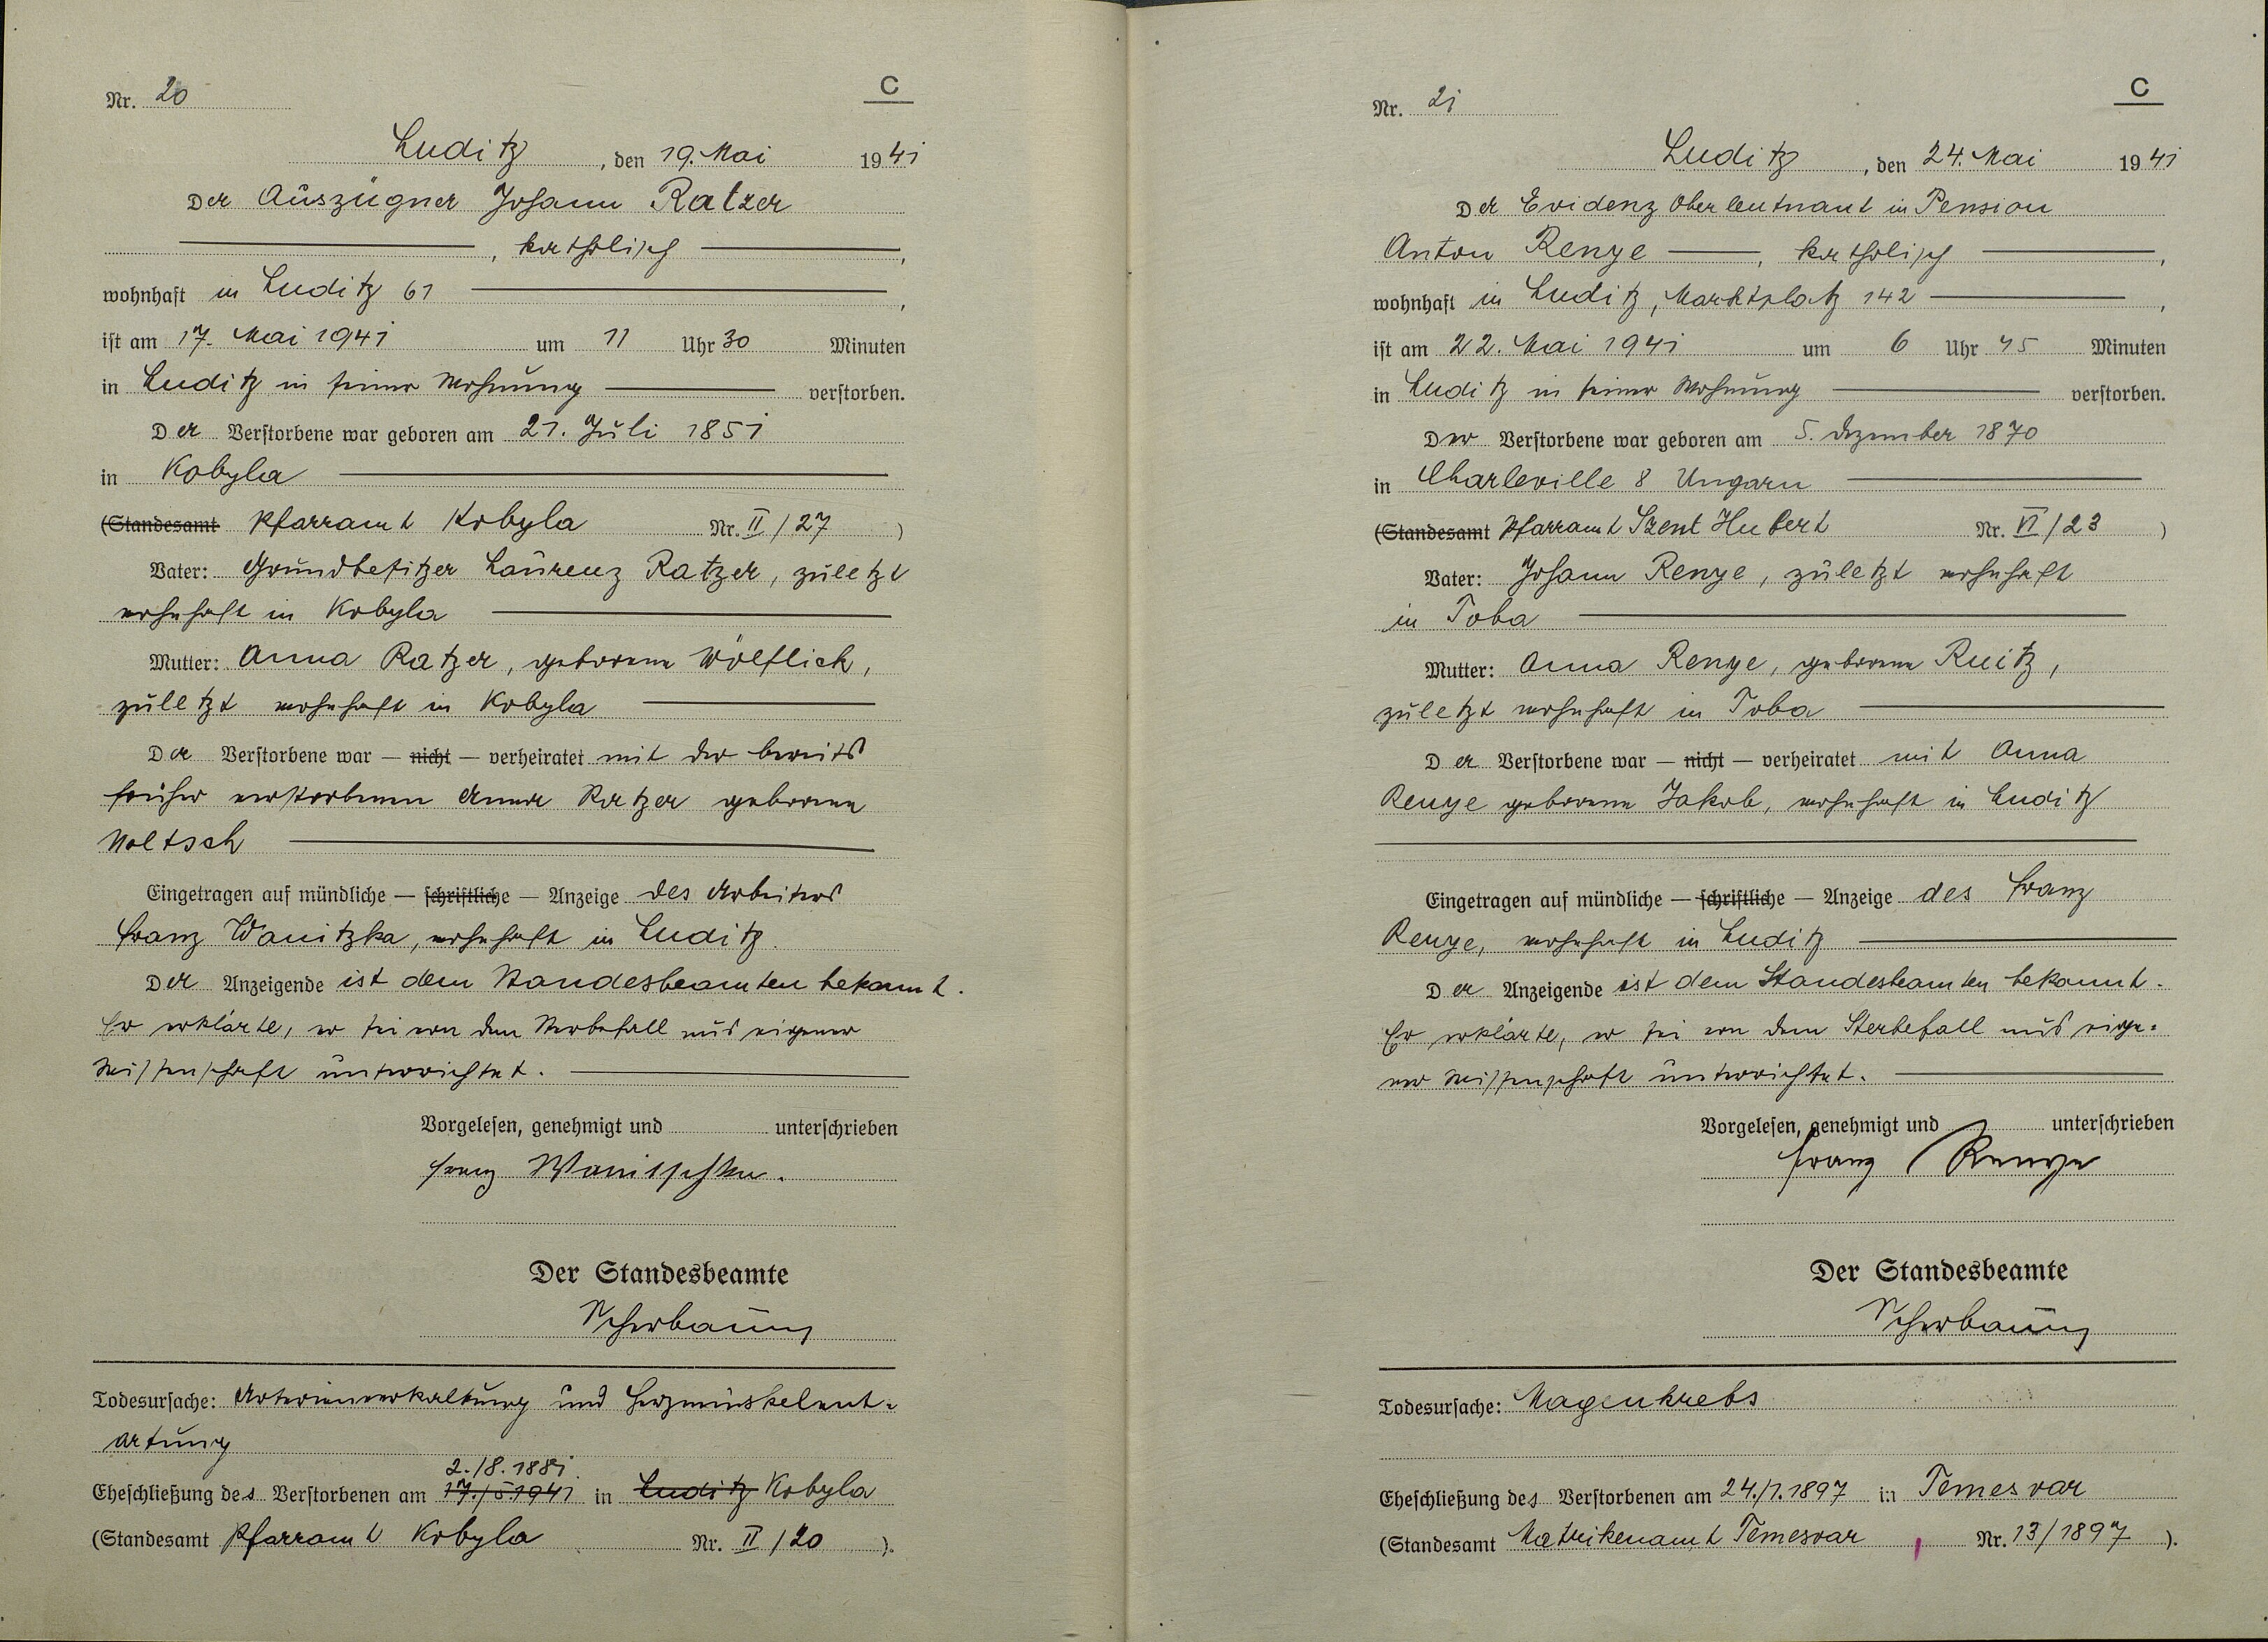 Nr. 20
C
Luditz, den 19. Mai 1941
Der Auszügner Johann Ratzer
, katholisch ,
wohnhaft in Luditz 61 ,
ist am 17. Mai 1941 um 11 Uhr 30 Minuten
in Luditz in seiner Wohnung verstorben.
Der Verstorbene war geboren am 21. Juli 1851
in Kobyla
(Standesamt Pfarramt Kobyla Nr. II/27 )
Vater: Grundbesitzer Laurenz Ratzer, zuletzt
wohnhaft in Kobyla
Mutter: Anna Ratzer, geborene Wölflick,
zuletzt wohnhaft in Kobyla
Der Verstorbene war — nicht — verheiratet mit der bereits
früher verstorbenen Anna Ratzer geborene
Woltsch
Eingetragen auf mündliche — schriftliche — Anzeige des Arbeiters
Franz Wanitzka, wohnhaft in Luditz.
Der Anzeigende ist dem Standesbeamten bekannt.
Er erklärte, er sei von dem Sterbefall aus eigener
Wissenschaft unterrichtet.
Vorgelesen, genehmigt und unterschrieben
Franz Wanitschka.
Der Standesbeamte
Scherbaum
Todesursache: Arterienverkalkung und Herzmuskelent-
artung
2./8. 1881.
Eheschließung des Verstorbenen am 17./5 1941 in Luditz Kobyla
(Standesamt Pfarramt Kobyla Nr. II/20 ).
Nr. 21
C
Luditz, den 24. Mai 1941
Der Evidenz Oberleutnant in Pension
Anton Renye , katholisch ,
wohnhaft in Luditz, Marktplatz 142 ,
ist am 22. Mai 1941 um 6 Uhr 45 Minuten
in Luditz in seiner Wohnung verstorben.
Der Verstorbene war geboren am 5. Dezember 1870
in Charleville 8 Ungarn
(Standesamt Pfarramt Szent Hubert Nr. VI/23 )
Vater: Johann Renye, zuletzt wohnhaft
in Toba
Mutter: Anna Renye, geborene Ruitz,
zuletzt wohnhaft in Toba
Der Verstorbene war — nicht — verheiratet mit Anna
Renye geborene Jakob, wohnhaft in Luditz
Eingetragen auf mündliche — schriftliche — Anzeige des Franz
Renye, wohnhaft in Luditz
Der Anzeigende ist dem Standesbeamten bekannt.
Er erklärte, er sei von dem Sterbefall aus eige-
ner Wissenschaft unterrichtet.
Vorgelesen, genehmigt und unterschrieben
Franz Renye
Der Standesbeamte
Scherbaum
Todesursache: Magenkrebs
Eheschließung des Verstorbenen am 24./1. 1897 in Temesvar
(Standesamt Matrikenamt Temesvar Nr. 13/1897 ).